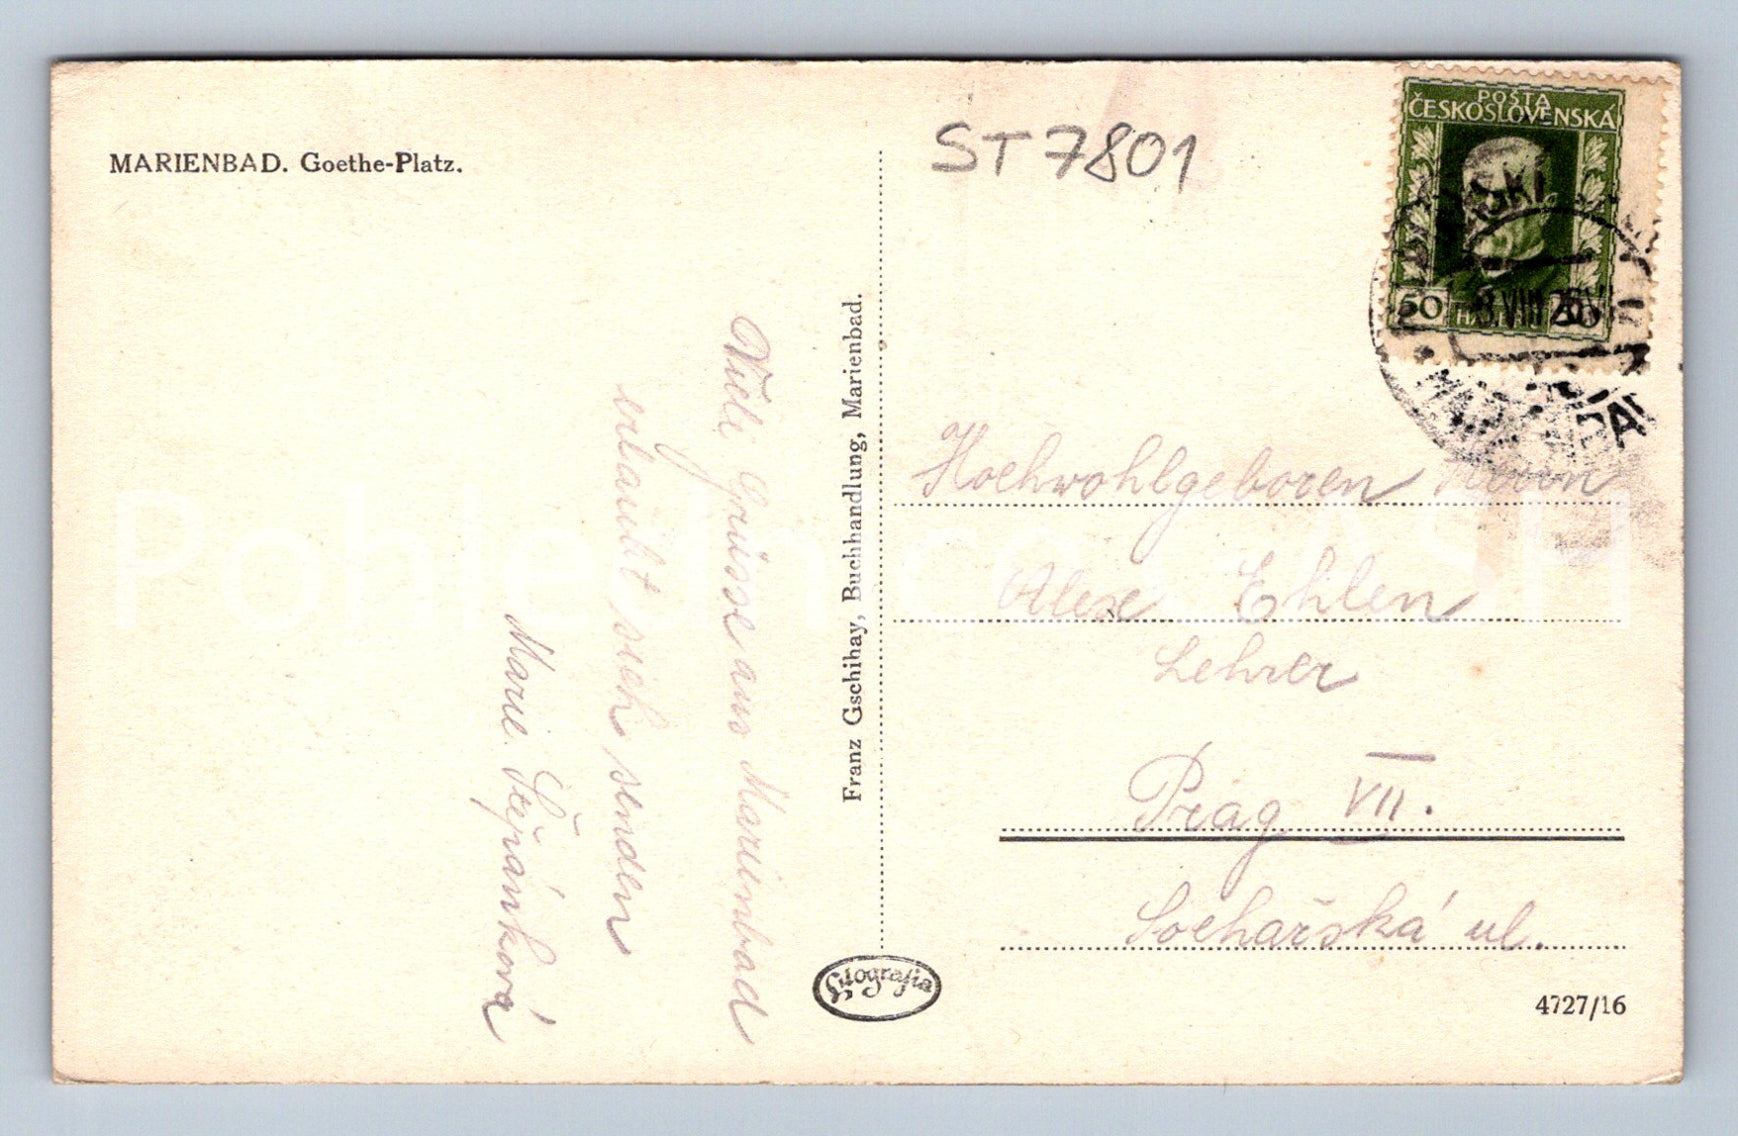 MARIENBAD. Goethe-Platz.
ST7801
POŠTA
ČESKOSLOVENSKÁ
50 50
VIII 26
Viele Grüsse aus Marienbad
erlaubt sich senden
Marie Štěpánková
Franz Gschihay, Buchhandlung, Marienbad.
Hochwohlgeboren Herrn
Alex Ehlen
Lehrer
Prag VII.
Sochařská ul.
Litografia
4727/16